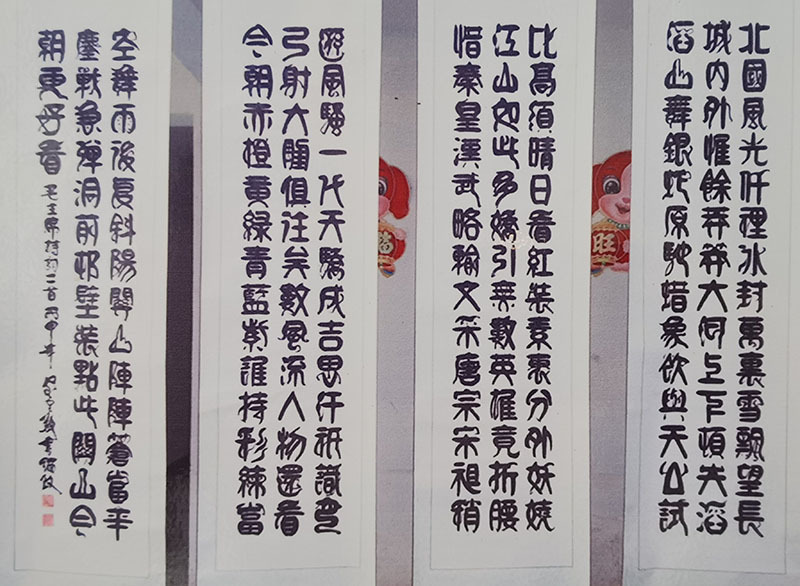 北國風光仟裡冰封萬裏雪飄望長
城内外惟餘莽莽大何上下頓失滔
滔山舞銀蛇原馳蜡象欲與天公試
比髙須晴日看紅裝素裹分外妖嬈
江山如此多嬌引無數英雄竞折腰
惜秦皇漢武略輸文采唐宗宋祖稍
遜風騷一代天驕成吉思汗祇識彎
弓射大雕俱往矣數風流人物還看
今朝赤橙黄綠青藍紫誰持彩練當
空舞雨後复斜陽關山陣陣蒼當年
鏖戰急彈洞前邨壁裝點此關山今
朝更好看 毛主席詩詞二首 丙申年
福
旺